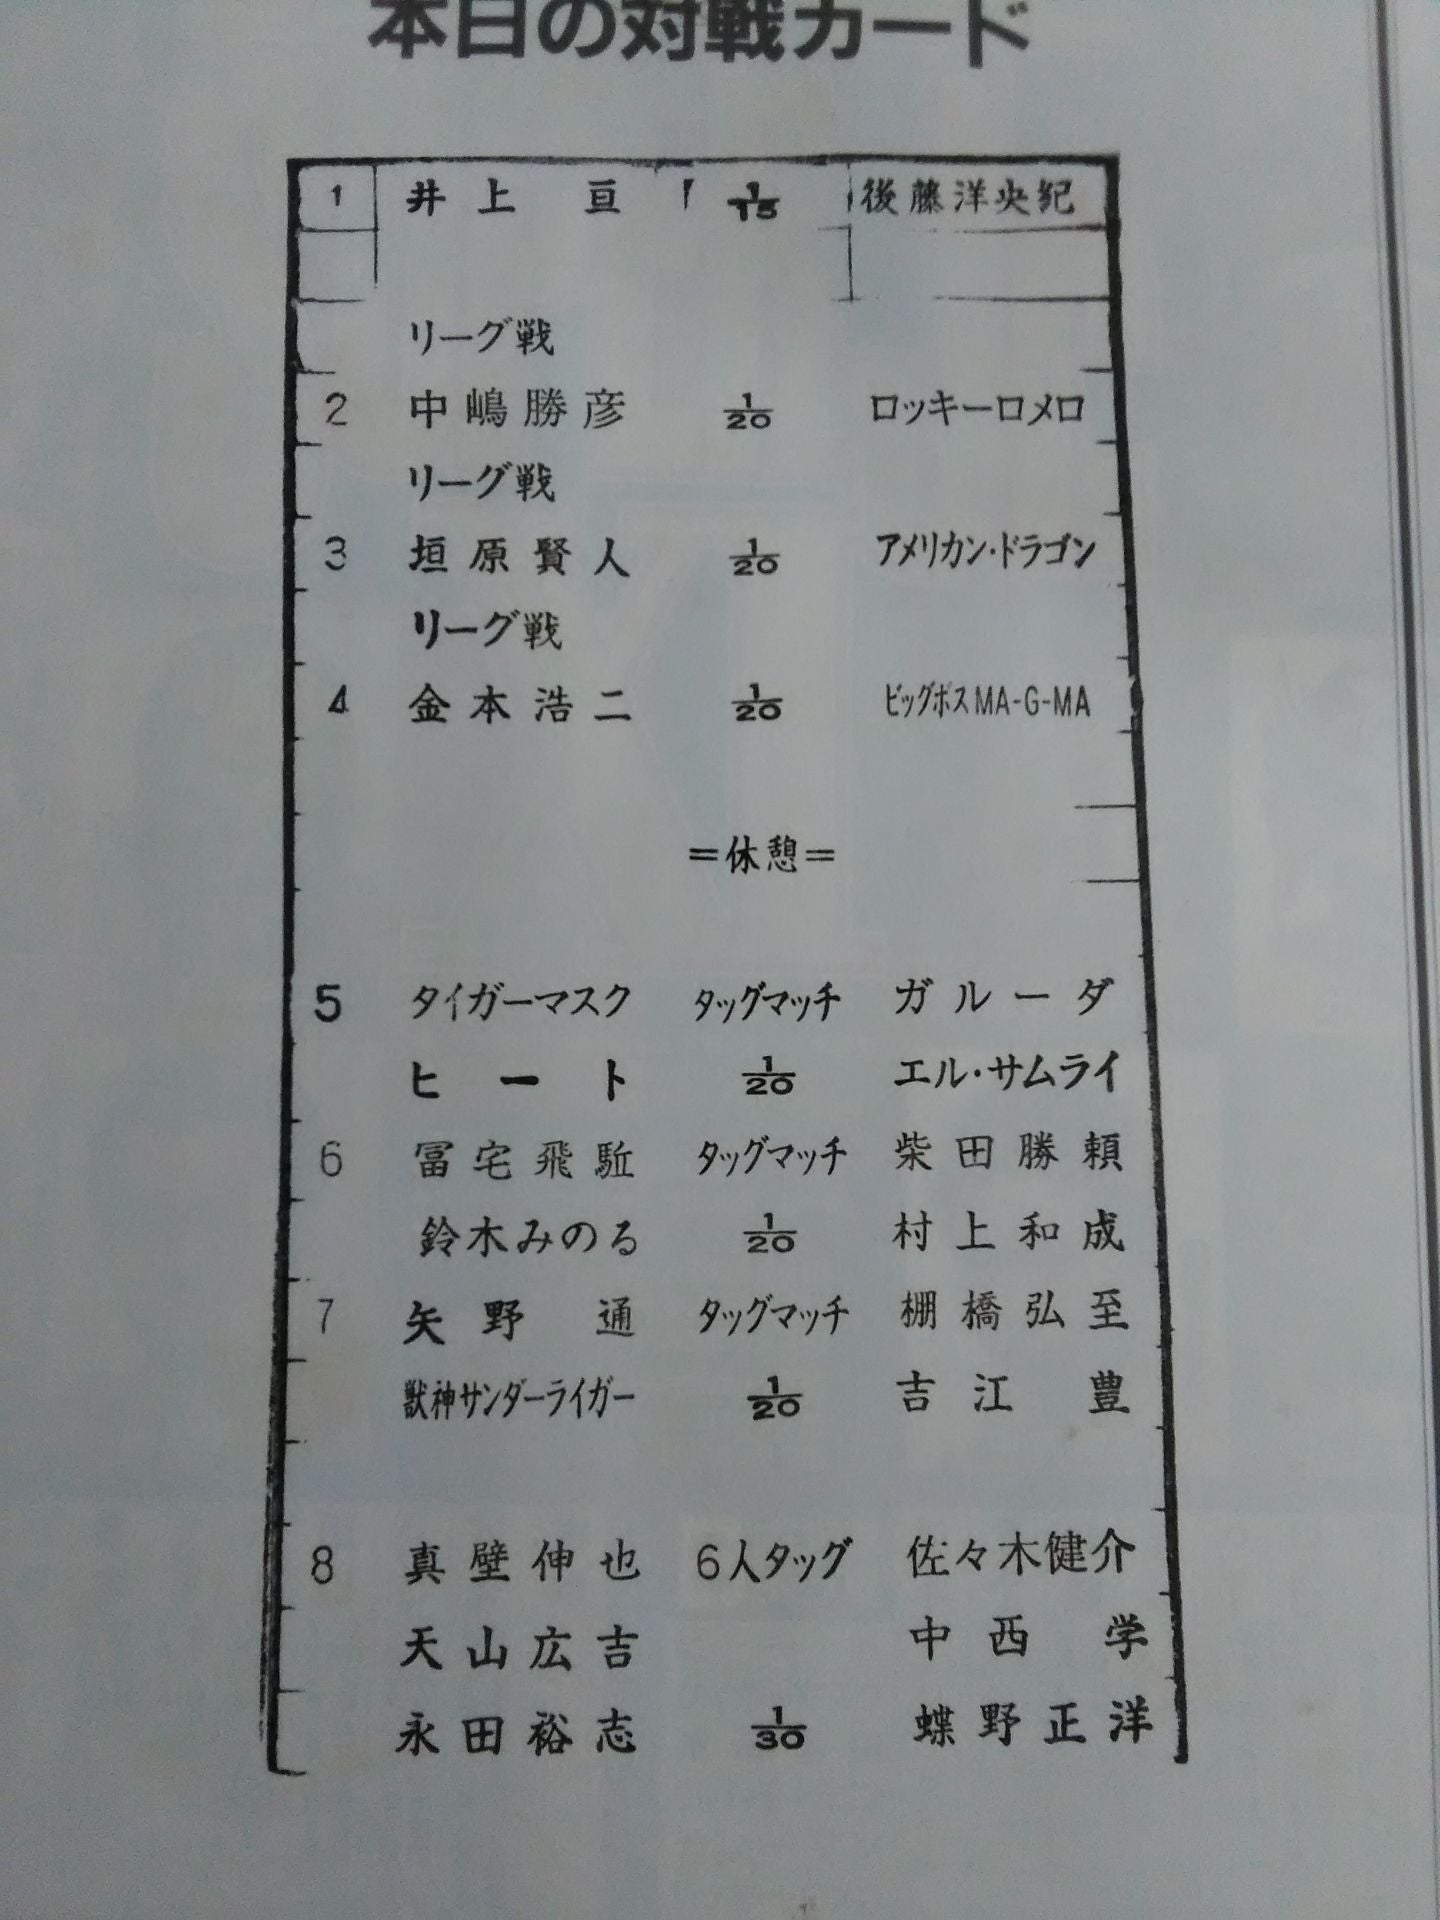 本日の対戦カード
1 井上 亘 1/15 後藤洋央紀
リーグ戦
2 中嶋勝彦 1/20 ロッキーロメロ
リーグ戦
3 垣原賢人 1/20 アメリカン・ドラゴン
リーグ戦
4 金本浩二 1/20 ビッグボスMA-G-MA
=休憩=
5 タイガーマスク タッグマッチ ガルーダ
ヒート 1/20 エル・サムライ
6 冨宅飛駈 タッグマッチ 柴田勝頼
鈴木みのる 1/20 村上和成
7 矢野 通 タッグマッチ 棚橋弘至
獣神サンダーライガー 1/20 吉江 豊
8 真壁伸也 6人タッグ 佐々木健介
天山広吉 中西 学
永田裕志 1/30 蝶野正洋